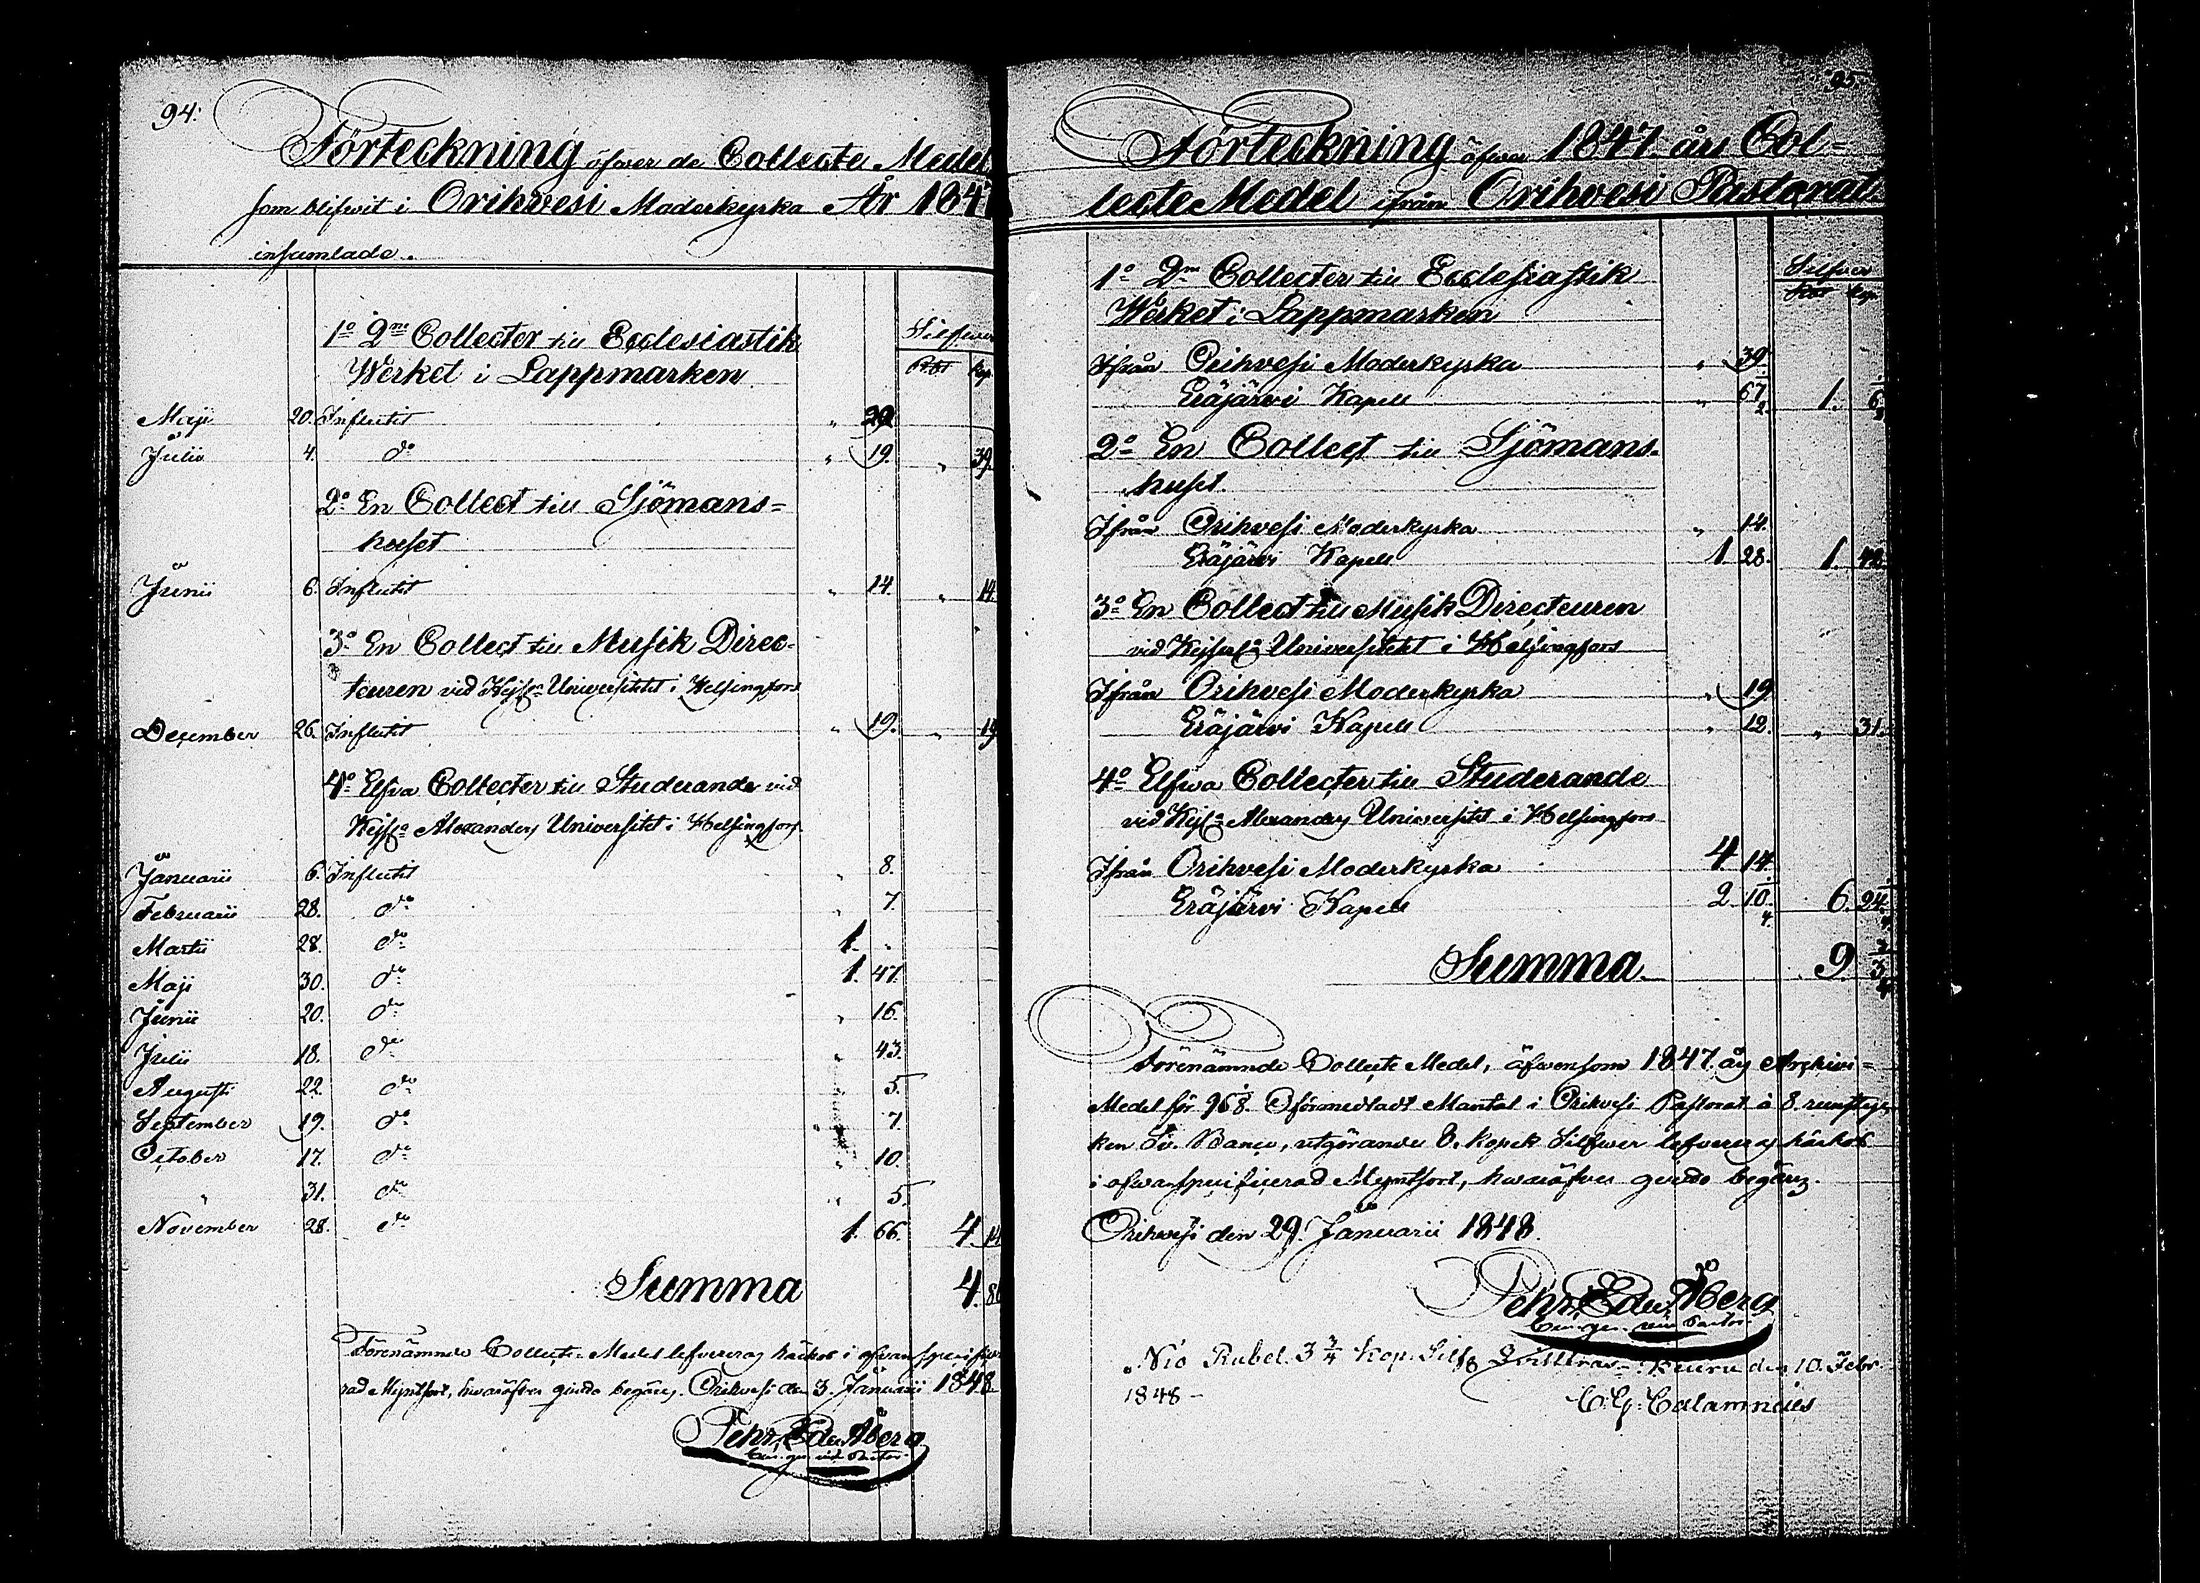 94.
Förteckning öfwer de Collecte Medel
som blifwit i Orihvesi Moderkyrka År 1847
insamlade.
Silfwer
Rbl Kop.
1o 2ne Collecter till Ecclesiastik
Werket i Lappmarken
Maji 20. Influtit „ 20.
Julii 4. do „ 19. „ 39.
2o En Collect till Sjömans=
huset
Junii 6. Influtit „ 14. „ 14.
3o En Collect till Musik Direc-
teuren vid Kejsa Universitetet i Helsingfors
December 26. Influtit „ 19. „ 19
4o Elfva Collecter till Studerande vid
Kejsa Alexanders Universitet i Helsingfors
Januarii 6. Influtit „ 8.
Februarii 28. do „ 7.
Martii 28. do 1. „
Maji 30. do 1. 47.
Junii 20. do „ 16.
Julii 18. do „ 43.
Augusti 22. do „ 5.
September 19. do „ 7.
October 17. do „ 10.
„ 31. do „ 5.
November 28. do 1. 66. 4. 14
Summa 4. 86
Förenämnde Collecte Medel lefvereras härhos i ofvan specifice-
rad Myntsort, hwaröfver qvitto begäres. Orihvesi den 3. Januarii 1848
Pehr Edv. Åberg
95.
Förteckning öfwer 1847 års Col=
lecte Medel ifrån Orihvesi Pastorat.
Silfwer
Rbl Kop.
1o 2ne Collecter till Ecclesiastik
Werket i Lappmarken
Ifrån Orihvesi Moderkyrka „ 39.
Eräjärvi Kapell „ 67 1/2. 1. 6 1/2
2o En Collect till Sjömans-
huset.
Ifrån Orihvesi Moderkyrka „ 14.
Eräjärvi Kapell 1. 28. 1. 42.
3o En Collect till Musik Directeuren
vid Kejserla Universitetet i Helsingfors
Ifrån Orihvesi Moderkyrka „ 19
Eräjärvi Kapell „ 12. „ 31.
4o Elfwa Collecter till Studerande
vid Kejsa Alexanders Universitet i Helsingfors
Ifrån Orihvesi Moderkyrka 4 14.
Eräjärvi Kapell 2. 10 1/4. 6. 24 1/4
Summa. 9. 3 3/4
Förenämnde Collecte Medel, äfvensom 1847 års Archivi=
Medel för 968. Oförmedladt Mantal i Orihvesi Pastorat à 8. runstyc-
ken Sv. Banco, utgörande 8. kopek Silfwer lefvereras härhos
i ofvanspecificerad Myntsort, hwaröfver qvitto begäres.
Orihvesi den 29. Januarii 1848.
Pehr Edv. Åberg
Nio Rubel 3 3/4 Kop. Silfr Keuru den 10. Febr.
1848 -
C. G. Calamnius